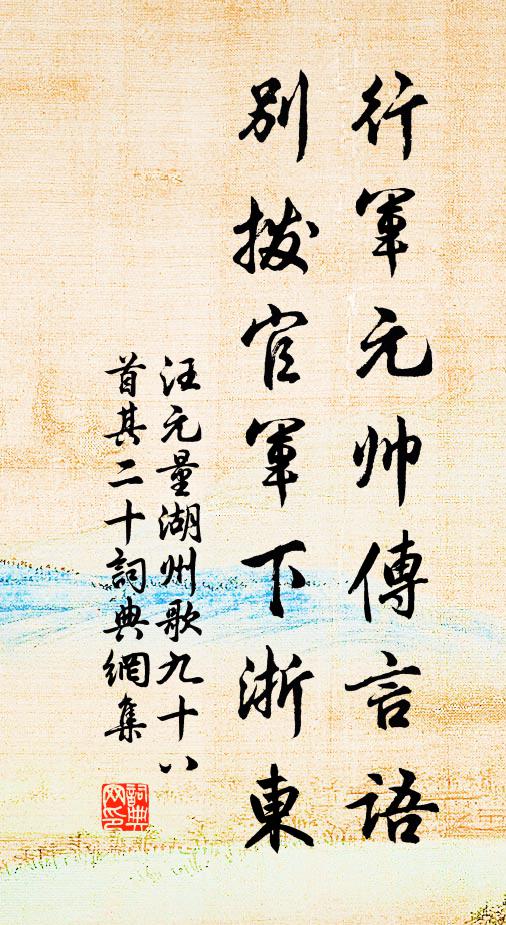 行軍元帅傳言語
別拨官軍下浙東
汪元量湖州歌九十八
首其二十詞典網集
詞典
网印